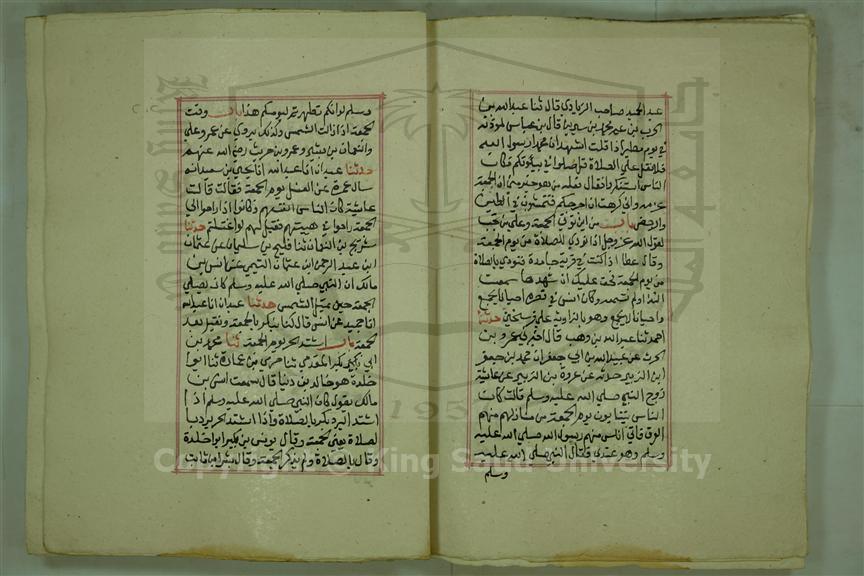 عبد الحميد صاحب الزيادي قال ثنا عبد الله بن
الحرث بن عم محمد بن سيرين قال بن عباس لموذنه
في يوم مطير اذا قلت اشهد ان محمدا رسول الله
فلا تقل حي علي الصلاة قل صلوا في بيوتكم فكان
الناس استنكروا فقال فعله من هو خير مني ان الجمعة
عزمه واني كرهت ان احرجكم فتمشون في الطين
والدحض باب من اين توتي الجمعة وعلي من تجب
لقول الله عز وجل اذا نودي للصلاة من يوم الجمعة
وقال عطا اذا كنت في قرية جامعة فنودي بالصلاة
من يوم الجمعة فحق عليك ان تشهدها سمعت
النداء او لم تسمعه وكان انس في قصره احيانا يجمع
واحيانا لا يجمع وهو بالزاوية علي فرسخين حدثنا
احمد ثنا عبد الله بن وهب قال اخبرني عمرو بن
الحرث عن عبيد الله بن ابي جعفر ان محمد بن جعفر
ابن الزبير حدثه عن عروة بن الزبير عن عائشة
زوج النبي صلي الله عليه وسلم قالت كان
الناس ينتابون يوم الجمعة من منازلهم
فاتي انس منهم رسول الله صلي الله عليه
وسلم وهو عندي فقال النبي صلي الله عليه
وسلم
وسلم لو انكم تطهرتم ليومكم هذا باب وقت
الجمعة اذا زالت الشمس وكذلك يروي عن عمر وعلي
والنعمان بن بشير وعمرو بن حريث رضي الله عنهم
حدثنا عبدان انا عبد الله انا يحيي بن سعيد انه
سال عمرة عن الغسل يوم الجمعة فقالت قالت
عائشة كان الناس انفسهم وكانوا اذا راحوا الي
الجمعة راحوا في هيئتهم فقيل لهم لو اغتسلتم حدثنا
سريج بن النعمان ثنا فليح بن سليمان عن عثمان
ابن عبد الرحمن ابن عثمان التيمي عن انس بن
مالك ان النبي صلي الله عليه وسلم كان يصلي
الجمعة حين تميل الشمس حدثنا عبدان انا عبد الله
انا حميد عن انس قال كنا نبكر بالجمعة ونقيل بعد
الجمعة باب اذا اشتد الحر يوم الجمعة ثنا محمد بن
ابي بكر المقدمي ثنا حرمي بن عمارة ثنا ابو
خلدة هو خالد بن دينار قال سمعت انس بن
مالك يقول كان النبي صلي الله عليه وسلم اذا
اشتد البرد بكر بالصلاة واذا اشتد الحر ابرد با
لصلاة يعني الجمعة وقال يونس بن بكير ابو خلدة
وقال بالصلاة ولم يذكر الجمعة وقال بشر ابن ثابت
Copyright © King Saud University